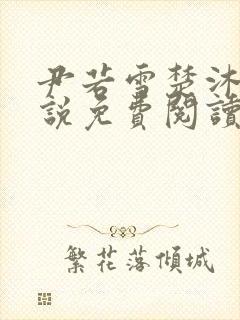 尹若雪楚沐
説免費閱讀
繁花落傾城